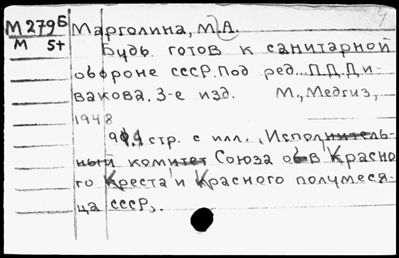 М279Б Марголина, М.А.
М 5+ Будь готов к санитарной
обороне СССР. Под ред. П.Д.Ди-
вакова. 3-е изд. М., Медгиз,
1948
стр. с илл., Исполнитель-
ный комитет Союза об-в Красно
го Креста и Красного полумеся-
ца СССР.